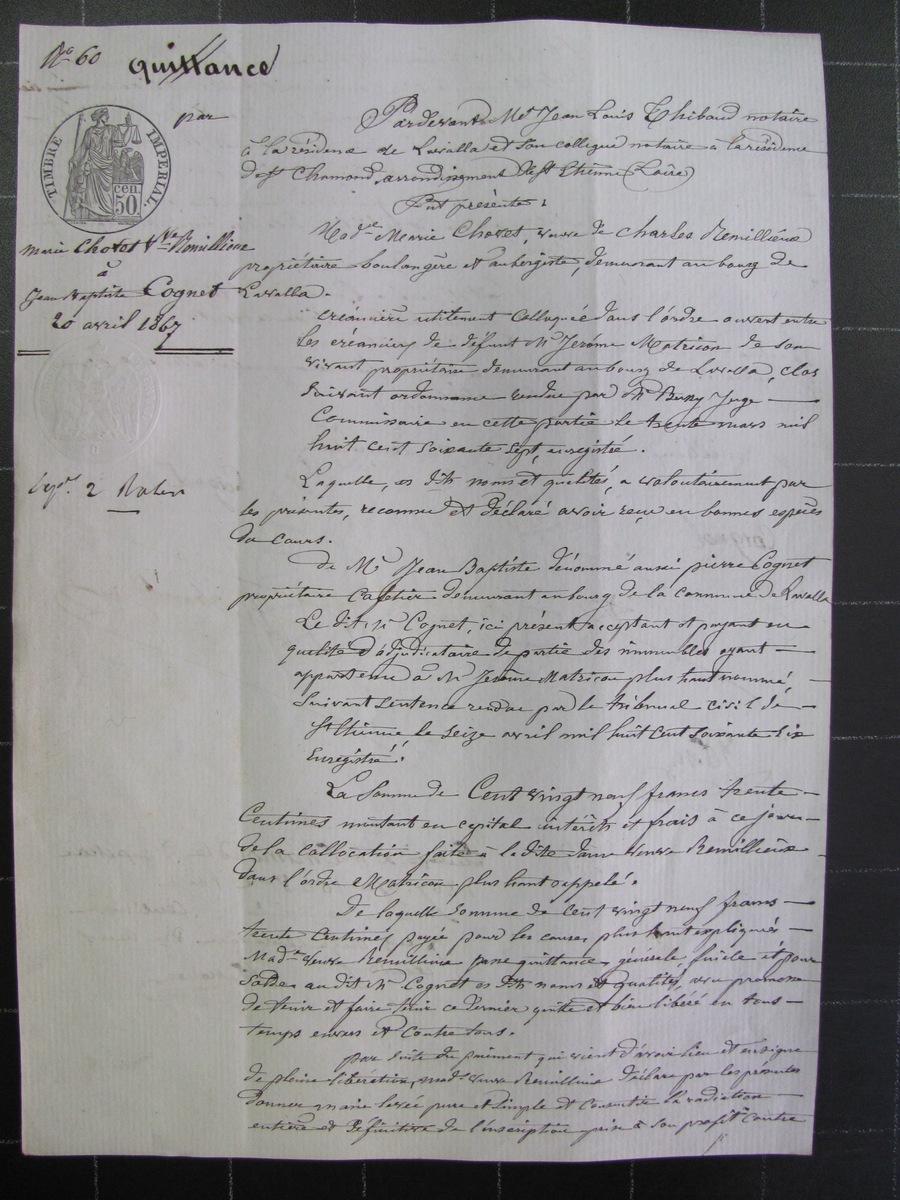 No 60 quittance
par
TIMBRE IMPERIAL.
50 cen.
marie Chovet Vve Remillieux
à
Jean Baptiste Cognet
20 avril 1867
2 Roles
Pardevant Me Jean Louis Thibaud notaire
à la résidence de Lavalla et son collègue notaire à la résidence
de St Chamond, arrondissement de St Etienne (Loire)
Fut présente:
Made Marie Chovet, veuve de Charles Remillieux
propriétaire boulangère et aubergiste, demeurant au bourg de
Lavalla.
créancière utilement colloquée dans l'ordre ouvert entre
les créanciers de défunt Mr Jérôme Matricon de son
vivant propriétaire demeurant au bourg de Lavalla, clos
suivant ordonnance rendue par Mr Juge
Commissaire en cette partie le trente mars mil
huit cent soixante sept, enregistrée.
Laquelle, es dits noms et qualités, a volontairement par
les présentes, reconnu et déclaré avoir reçu en bonnes espèces
du cours.
de Mr Jean Baptiste dénommé aussi pierre Cognet
propriétaire Cafetier demeurant au bourg de la commune de Lavalla
Le dit Mr Cognet, ici présent acceptant et payant en
qualité d'adjudicataire de partie des immeubles ayant
appartenu à Mr Jérôme Matricon plus haut nommé
suivant sentence rendue par le tribunal civil de
St Etienne le seize avril mil huit cent soixante six
Enregistré.
La Somme de Cent vingt neuf francs trente
Centimes montant en capital intérêts et frais à ce jour
de la Collocation faite à la dite dame veuve Remillieux
dans l'ordre Matricon plus haut rappelé.
De laquelle somme de cent vingt neuf francs
trente centimes payée pour les causes plus haut expliquées
Made veuve Remillieux passe quittance générale finale et pour
solde au dit Mr Cognet es dits noms et qualités, avec promesse
de tenir et faire tenir ce dernier quitte et bien libéré en tous
temps envers et contre tous.
par suite du paiement qui vient d'avoir lieu et en signe
de pleine libération, made veuve Remillieux déclare par les présentes
donner main levée pure et simple et consentir la radiation
entière et définitive de l'inscription prise à son profit contre